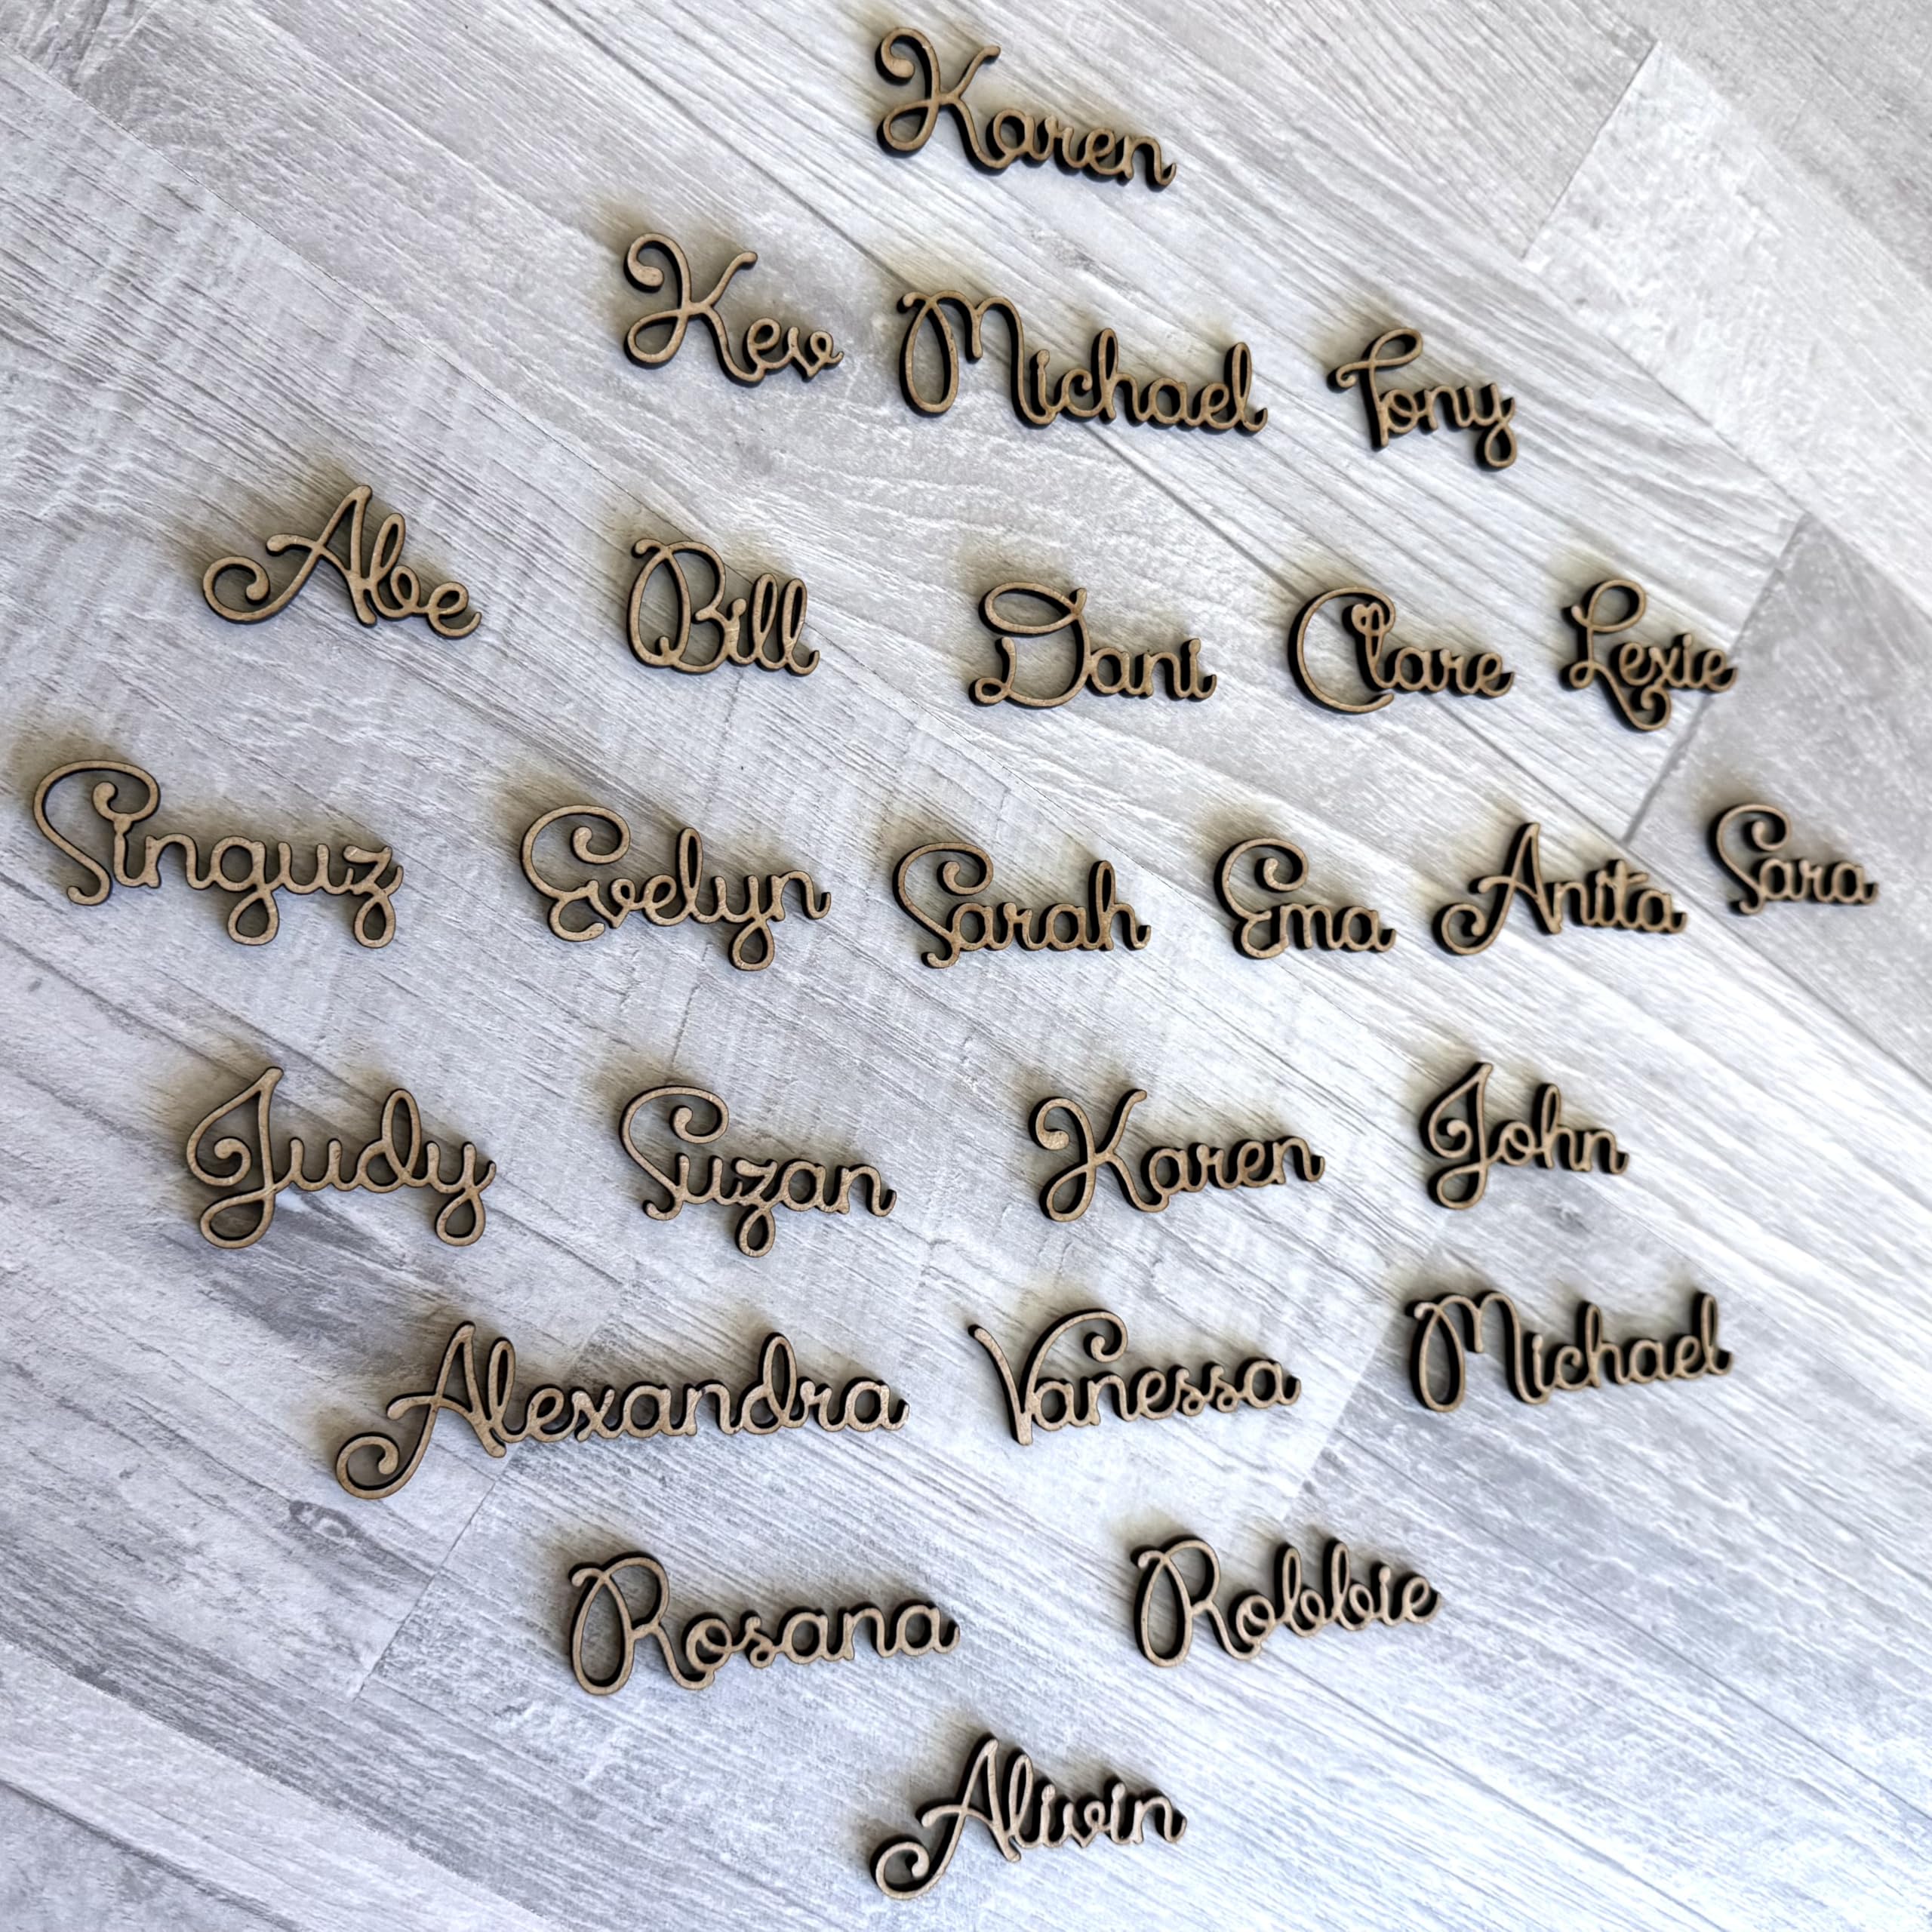 Karen
Kev Michael Tony
Abe Bill Dani Clare Lexie
Singuz Evelyn Sarah Ema Anita Sara
Judy Suzan Karen John
Alexandra Vanessa Michael
Rosana Robbie
Alivin